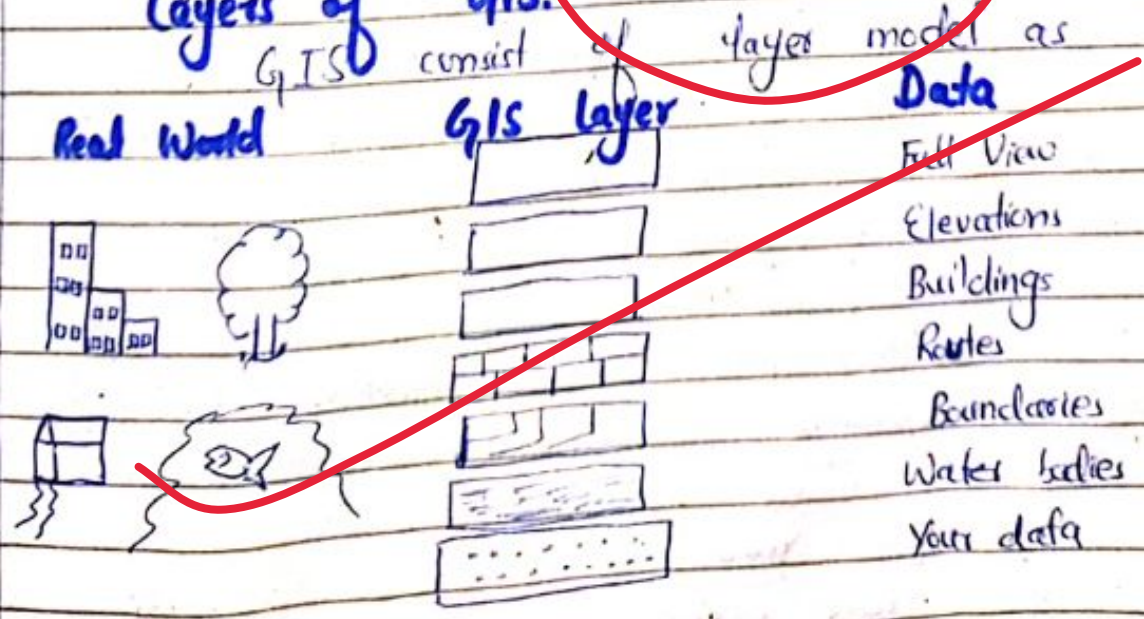 Layers of GIS:
GIS consist of layer model as
Real World GIS layer Data
Full View
Elevations
Buildings
Routes
Boundaries
Water bodies
Your data